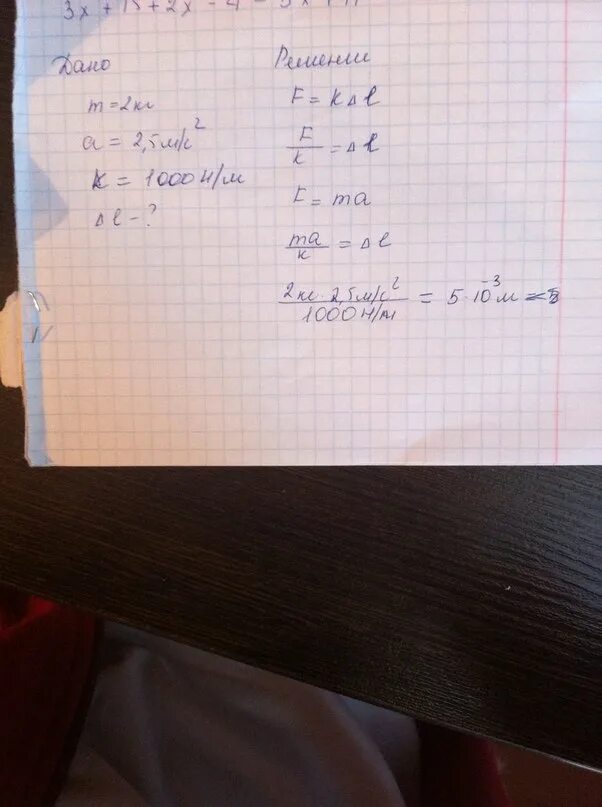 3x + 15 + 2x - 4
Дано
m = 2кг
a = 2,5 м/с²
k = 1000 Н/м
Δl - ?
Решение
F = kΔl
F/k = Δl
F = ma
ma/k = Δl
2кг · 2,5 м/с² / 1000 Н/м = 5 · 10⁻³ м